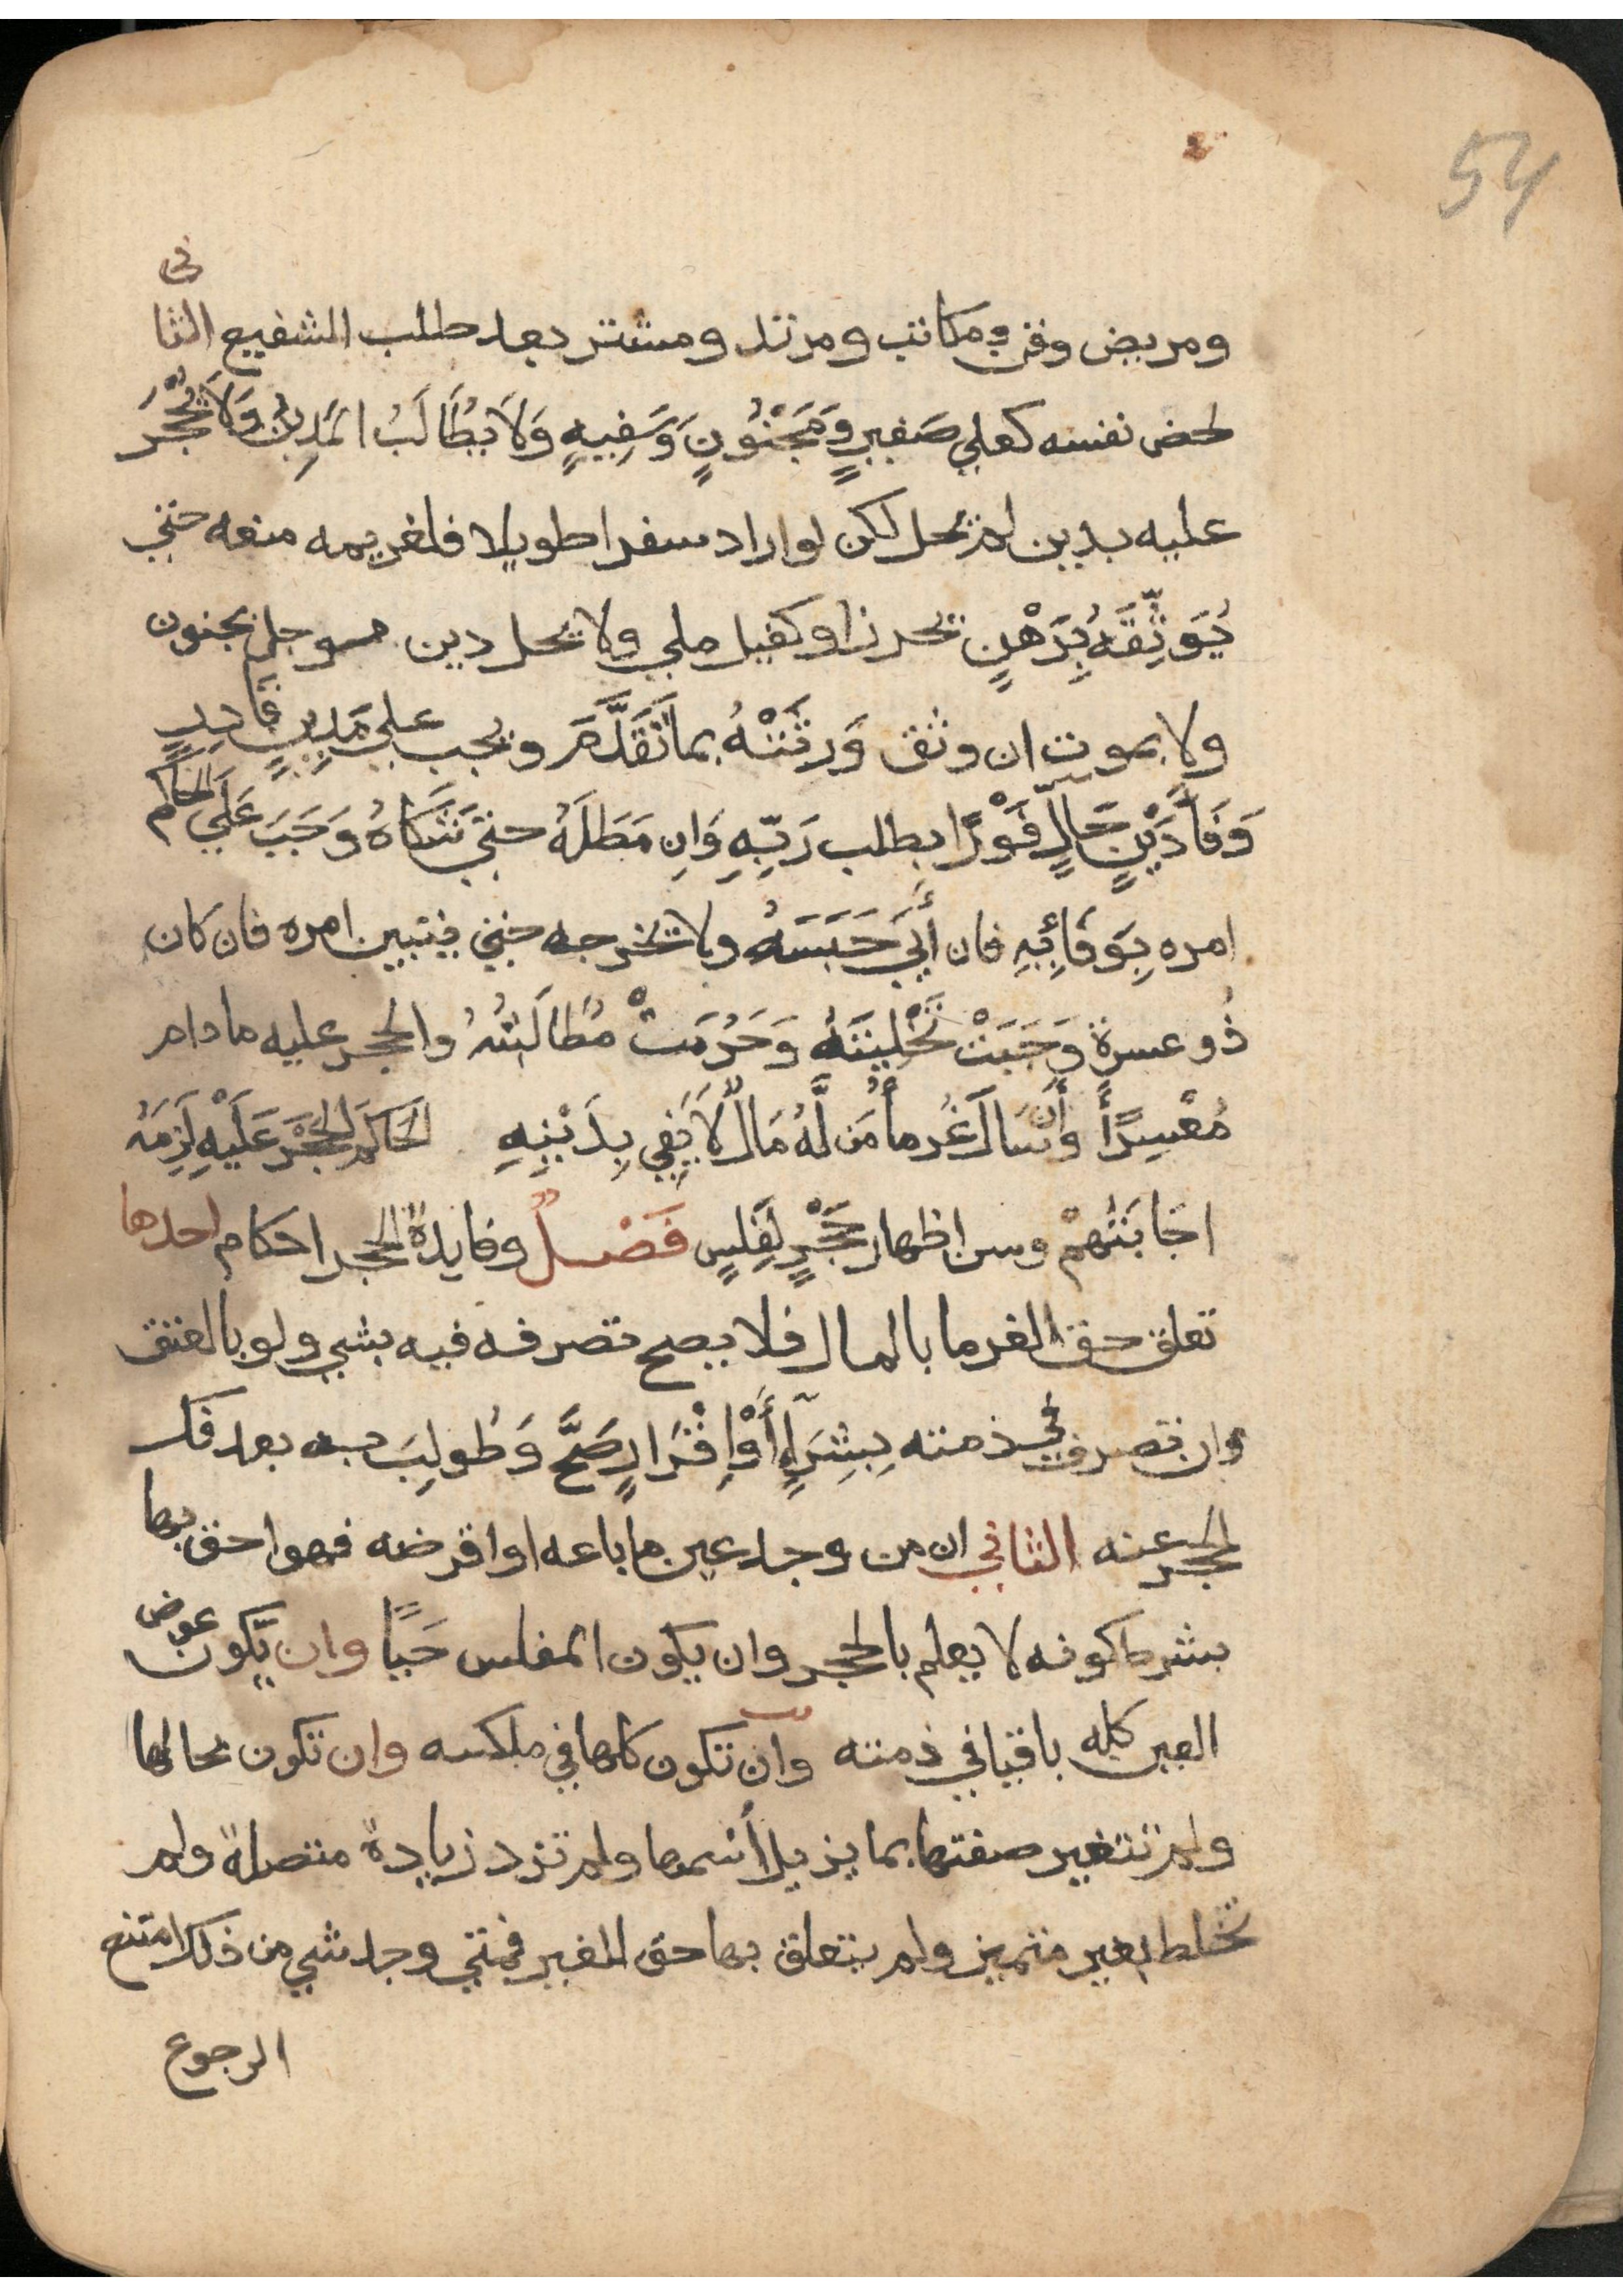 54
ومريض وقن ومكاتب ومرتد ومشتر بعد طلب الشفيع الثانى
لحض نفسه كعلي صَغيرٍ وَمَجْنُونٍ وَسَفِيهٍ وَلَا يُطَالَبُ المَدِينُ وَلَا يُحْجَرُ
عليه بدين لم يحل لكن لو اراد سفرا طويلا فلغريمه منعه حتي
يُوَثِّقَهُ بِرَهْنٍ يحرز او كفيل ملي ولا يحل دين موجل بجنون
ولا بموت ان وثق وَرِثَتُهُ بما تَقَدَّمَ ويجب علي مَدِينٍ قَادِرٍ
وَفَا دَيْنٍ حَالٍّ فَوْرًا بطلب رَبِّهِ وَانِ مَطَلَهُ حتيَ شَكَاهُ وَجَبَ عَلَي الحَاكم
امره بِوَفَائِهِ فان أَبَي حَبَسَهُ ولا يخرجه حتي يتبين امره فان كان
ذُو عسرة وَجَبَتْ تَخْلِيَتَهُ وَحَرُمَتْ مُطَالَبَتُهُ والحجر عليه مادام
مُعْسِرًا وأن سَالَ غُرمأ مُن لَّهُ مَالٌ لَا يَفِي بِدَيْنِهِ الحَاكمَ الحَجْرَ عَلَيْهِ لَزِمَهُ
اجَابَتُهُمْ وسن اظهار حَجْرٍ لِفَلِسٍ فَصْلٌ وفايدة الحجر احكام احدها
تعلق حق الغرما بالمال فلا يصح تصرفه فيه بشي ولو بالعتق
وان تصرف في ذمته بِشِرَآءٍ أَوْ اِقْرَارٍ صَحَّ وَطُولِبَ به بعد فك
الحجر عنه الثاني ان من وجد عين ما باعه او اقرضه فهو احق بها
بشرط كونه لا يعلم بالحجر وان يكون المفلس حَيًا وان يَّكون عوض
العين كله باقيا في ذمته وان تكون كلها في ملكه وان تكون بحالها
ولم تتغير صفتها بما يزيل أسمها ولم تزد زيادة متصلة ولم
تختلط بغير متميز ولم يتعلق بها حق للغير فمتي وجد شي من ذلك امتنع
الرجوع